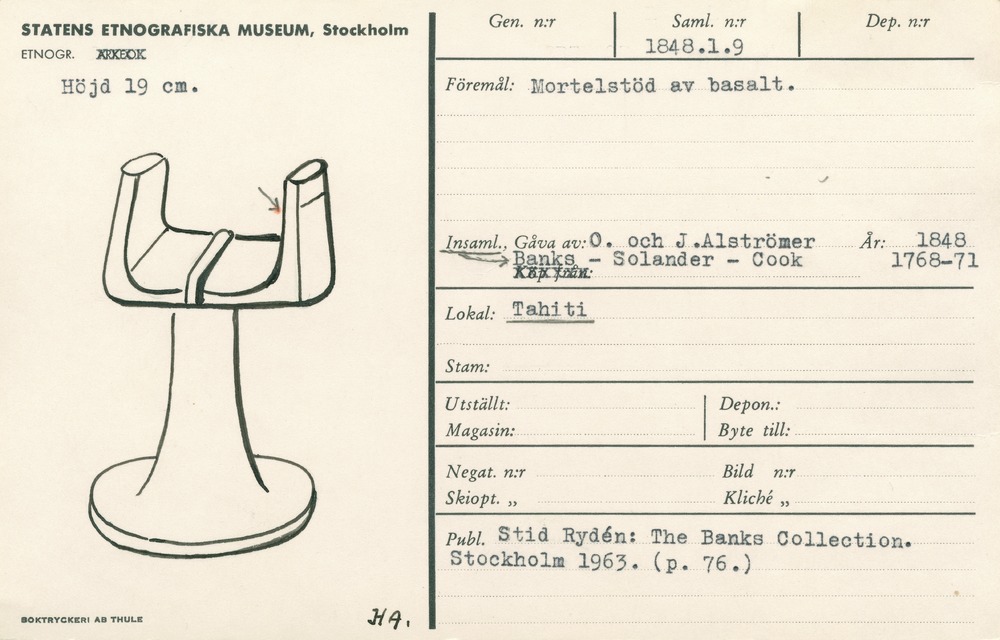 STATENS ETNOGRAFISKA MUSEUM, Stockholm
ETNOGR. ARKEOK
Höjd 19 cm.
BOKTRYCKERI AB THULE
HA.
Gen. n:r
Saml. n:r
Dep. n:r
1848.1.9
Föremål: Mortelstöd av basalt.
Insaml., Gåva av: O. och J.Alströmer År: 1848
Banks - Solander - Cook 1768-71
Köp från:
Lokal: Tahiti
Stam:
Utställt: Depon.:
Magasin: Byte till:
Negat. n:r Bild n:r
Skiopt. „ Kliché „
Publ. Stid Rydén: The Banks Collection.
Stockholm 1963. (p. 76.)